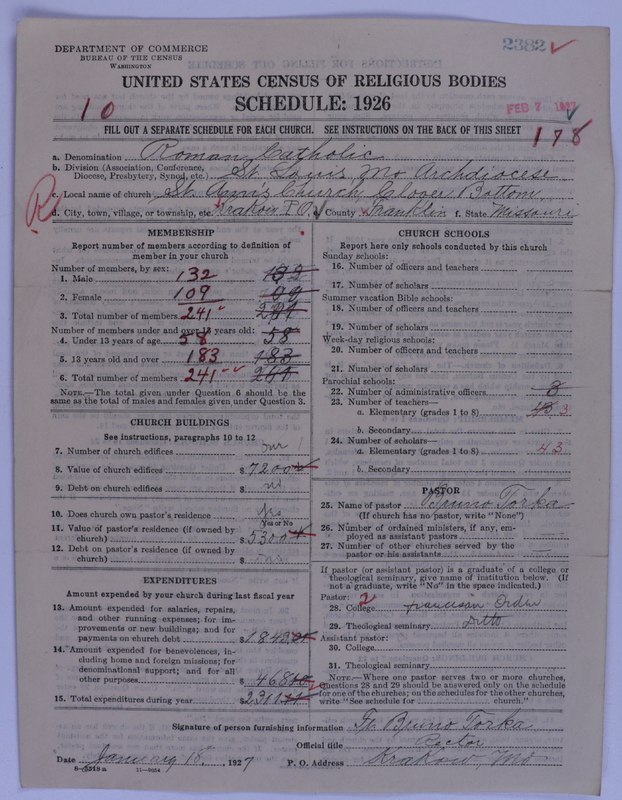 DEPARTMENT OF COMMERCE
BUREAU OF THE CENSUS
WASHINGTON
2382
UNITED STATES CENSUS OF RELIGIOUS BODIES
SCHEDULE: 1926
10
FEB 7 1927
FILL OUT A SEPARATE SCHEDULE FOR EACH CHURCH. SEE INSTRUCTIONS ON THE BACK OF THIS SHEET
178
a. Denomination Roman Catholic
b. Division (Association, Conference, Diocese, Presbytery, Synod, etc.) St. Louis Mo Archdiocese
R
c. Local name of church St. Ann's Church, Clover Bottom
d. City, town, village, or township, etc. Krakow P.O. County Franklin f. State Missouri
MEMBERSHIP
Report number of members according to definition of member in your church
Number of members, by sex:
1. Male 132 132
2. Female 109
3. Total number of members 241 241
Number of members under and over 13 years old:
4. Under 13 years of age 58 58
5. 13 years old and over 183 183
6. Total number of members 241 241
NOTE.—The total given under Question 6 should be the same as the total of males and females given under Question 3.
CHURCH BUILDINGS
See instructions, paragraphs 10 to 12
7. Number of church edifices
8. Value of church edifices $7200
9. Debt on church edifices $ no
10. Does church own pastor's residence Yes
Yes or No
11. Value of pastor's residence (if owned by church) $5300
12. Debt on pastor's residence (if owned by church) $
EXPENDITURES
Amount expended by your church during last fiscal year
13. Amount expended for salaries, repairs, and other running expenses; for improvements or new buildings; and for payments on church debt $1842
14. Amount expended for benevolences, including home and foreign missions; for denominational support; and for all other purposes $468
15. Total expenditures during year $2311
CHURCH SCHOOLS
Report here only schools conducted by this church
Sunday schools:
16. Number of officers and teachers
17. Number of scholars
Summer vacation Bible schools:
18. Number of officers and teachers
19. Number of scholars
Week-day religious schools:
20. Number of officers and teachers
21. Number of scholars
Parochial schools:
22. Number of administrative officers
23. Number of teachers—
a. Elementary (grades 1 to 8) 3
b. Secondary
24. Number of scholars—
a. Elementary (grades 1 to 8) 43
b. Secondary
PASTOR
25. Name of pastor Bruno Torka
(If church has no pastor, write "None")
26. Number of ordained ministers, if any, employed as assistant pastors
27. Number of other churches served by the pastor or his assistants
If pastor (or assistant pastor) is a graduate of a college or theological seminary, give name of institution below. (If not a graduate, write "No" in the space indicated.)
Pastor: 2
28. College Franciscan Order
29. Theological seminary Ditto
Assistant pastor:
30. College
31. Theological seminary
NOTE.—Where one pastor serves two or more churches, Questions 28 and 29 should be answered only on the schedule for one of the churches; on the schedules for the other churches, write "See schedule for church."
Signature of person furnishing information Fr. Bruno Torka
Official title Rector
Date January 18, 1927 P. O. Address Krakow, Mo
8—5318a 11—9054